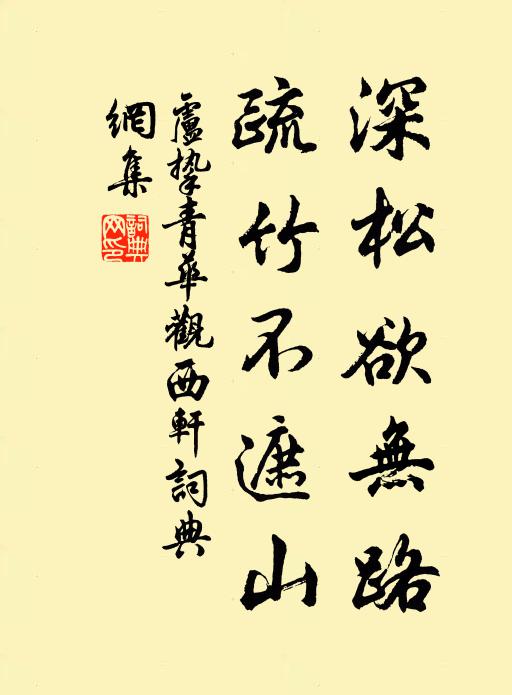 深松欲無路
疏竹不遮山
盧摯青華觀西軒詞典
網集
詞典網印